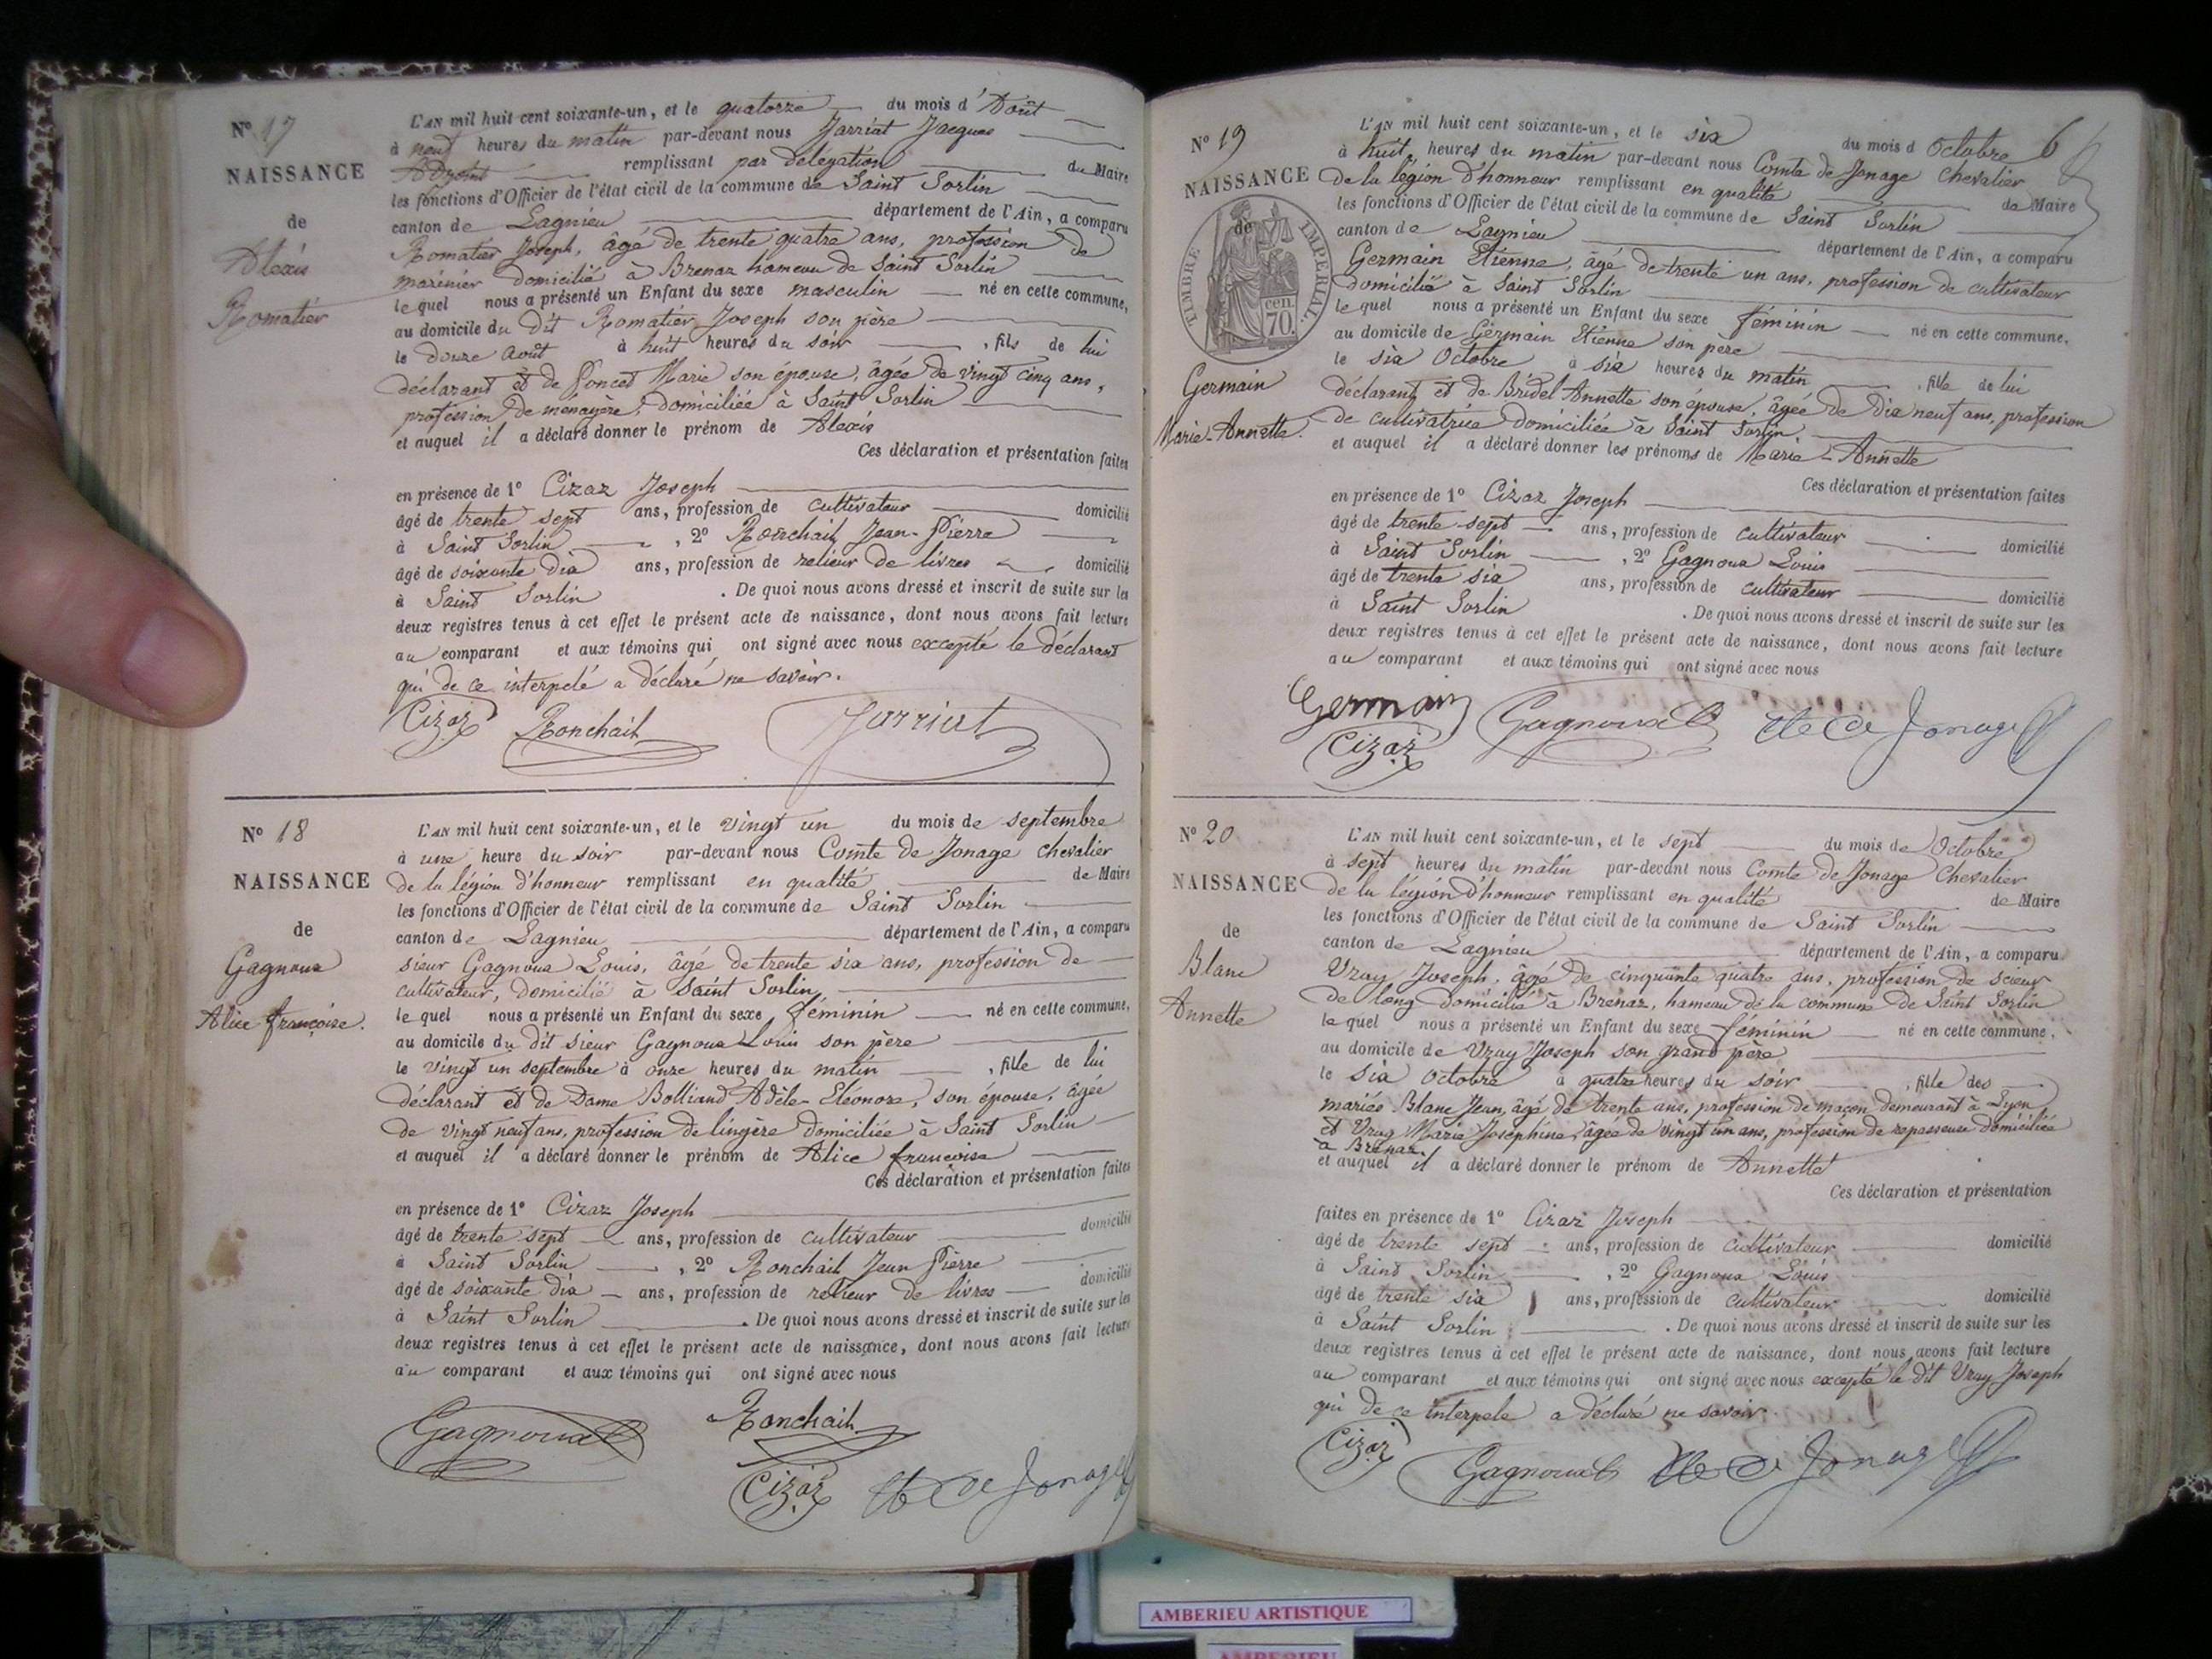 N° 17
NAISSANCE
de
Alexis
Romatier
L'AN mil huit cent soixante-un, et le quatorze du mois d'Août
à neuf heures du matin par-devant nous Jarriat Jacques
Adjoint remplissant par délégation du Maire
les fonctions d'Officier de l'état civil de la commune de Saint Sorlin
canton de Lagnieu département de l'Ain, a comparu
Romatier Joseph, âgé de trente quatre ans, profession de
marinier domicilié à Brenaz hameau de Saint Sorlin
le quel nous a présenté un Enfant du sexe masculin né en cette commune,
au domicile du dit Romatier Joseph son père
le douze août à huit heures du soir, fils de lui
déclarant et de Poncet Marie son épouse, âgée de vingt cinq ans,
profession de ménagère, domiciliée à Saint Sorlin
et auquel il a déclaré donner le prénom de Alexis
Ces déclaration et présentation faites
en présence de 1° Cizaz Joseph
âgé de trente sept ans, profession de cultivateur domicilié
à Saint Sorlin, 2° Ronchail Jean-Pierre
âgé de soixante dix ans, profession de relieur de livres domicilié
à Saint Sorlin. De quoi nous avons dressé et inscrit de suite sur les
deux registres tenus à cet effet le présent acte de naissance, dont nous avons fait lecture
au comparant et aux témoins qui ont signé avec nous excepté le déclarant
qui de ce interpelé a déclaré ne savoir.
Cizaz Ronchail Jarriat
N° 18
NAISSANCE
de
Gagnoux
Alice françoise.
L'AN mil huit cent soixante-un, et le vingt un du mois de septembre
à une heure du soir par-devant nous Comte de Jonage chevalier
de la légion d'honneur remplissant en qualité de Maire
les fonctions d'Officier de l'état civil de la commune de Saint Sorlin
canton de Lagnieu département de l'Ain, a comparu
sieur Gagnoux Louis, âgé de trente six ans, profession de
cultivateur, domicilié à Saint Sorlin
le quel nous a présenté un Enfant du sexe féminin né en cette commune,
au domicile du dit sieur Gagnoux Louis son père
le vingt un septembre à onze heures du matin, fille de lui
déclarant et de Dame Bolliand Adèle-Eléonore, son épouse, âgée
de vingt neuf ans, profession de lingère domiciliée à Saint Sorlin
et auquel il a déclaré donner le prénom de Alice françoise
Ces déclaration et présentation faites
en présence de 1° Cizaz Joseph
âgé de trente sept ans, profession de cultivateur domicilié
à Saint Sorlin, 2° Ronchail Jean Pierre
âgé de soixante dix ans, profession de relieur de livres domicilié
à Saint Sorlin. De quoi nous avons dressé et inscrit de suite sur les
deux registres tenus à cet effet le présent acte de naissance, dont nous avons fait lecture
au comparant et aux témoins qui ont signé avec nous
Gagnoux Ronchail
Cizaz Cte de Jonage
6
N° 19
NAISSANCE
de
TIMBRE IMPERIAL.
cen.
70.
Germain
Marie-Annette.
L'AN mil huit cent soixante-un, et le six du mois d Octobre
à huit heures du matin par-devant nous Comte de Jonage Chevalier
de la légion d'honneur remplissant en qualité de Maire
les fonctions d'Officier de l'état civil de la commune de Saint Sorlin
canton de Lagnieu département de l'Ain, a comparu
Germain Etienne, âgé de trente un ans, profession de cultivateur
domicilié à Saint Sorlin
le quel nous a présenté un Enfant du sexe féminin né en cette commune,
au domicile de Germain Etienne son père
le six Octobre à six heures du matin, fille de lui
déclarant et de Bridel Annette son épouse, âgée de dix neuf ans, profession
de cultivatrice domiciliée à Saint Sorlin
et auquel il a déclaré donner les prénoms de Marie-Annette
Ces déclaration et présentation faites
en présence de 1° Cizaz Joseph
âgé de trente-sept ans, profession de cultivateur domicilié
à Saint Sorlin, 2° Gagnoux Louis
âgé de trente six ans, profession de cultivateur domicilié
à Saint Sorlin. De quoi nous avons dressé et inscrit de suite sur les
deux registres tenus à cet effet le présent acte de naissance, dont nous avons fait lecture
au comparant et aux témoins qui ont signé avec nous
Germain Gagnoux Cte de Jonage
Cizaz
N° 20
NAISSANCE
de
Blanc
Annette
L'AN mil huit cent soixante-un, et le sept du mois de Octobre
à sept heures du matin par-devant nous Comte de Jonage Chevalier
de la légion d'honneur remplissant en qualité de Maire
les fonctions d'Officier de l'état civil de la commune de Saint Sorlin
canton de Lagnieu département de l'Ain, a comparu
Vray Joseph, âgé de cinquante quatre ans, profession de scieur
de long domicilié à Brenaz, hameau de la commune de Saint Sorlin
le quel nous a présenté un Enfant du sexe féminin né en cette commune,
au domicile de Vray Joseph son grand père
le six octobre à quatre heures du soir, fille des
mariés Blanc Jean, âgé de trente ans, profession de maçon demeurant à Lyon
et Vray Marie Josephine, âgée de vingt un ans, profession de repasseuse domiciliée
à Brenaz.
et auquel il a déclaré donner le prénom de Annette
Ces déclaration et présentation
faites en présence de 1° Cizaz Joseph
âgé de trente sept ans, profession de cultivateur domicilié
à Saint Sorlin, 2° Gagnoux Louis
âgé de trente six ans, profession de cultivateur domicilié
à Saint Sorlin. De quoi nous avons dressé et inscrit de suite sur les
deux registres tenus à cet effet le présent acte de naissance, dont nous avons fait lecture
au comparant et aux témoins qui ont signé avec nous excepté le dit Vray Joseph
qui de ce interpelé a déclaré ne savoir
Cizaz Gagnoux Cte de Jonage
AMBERIEU ARTISTIQUE
AMBERIEU